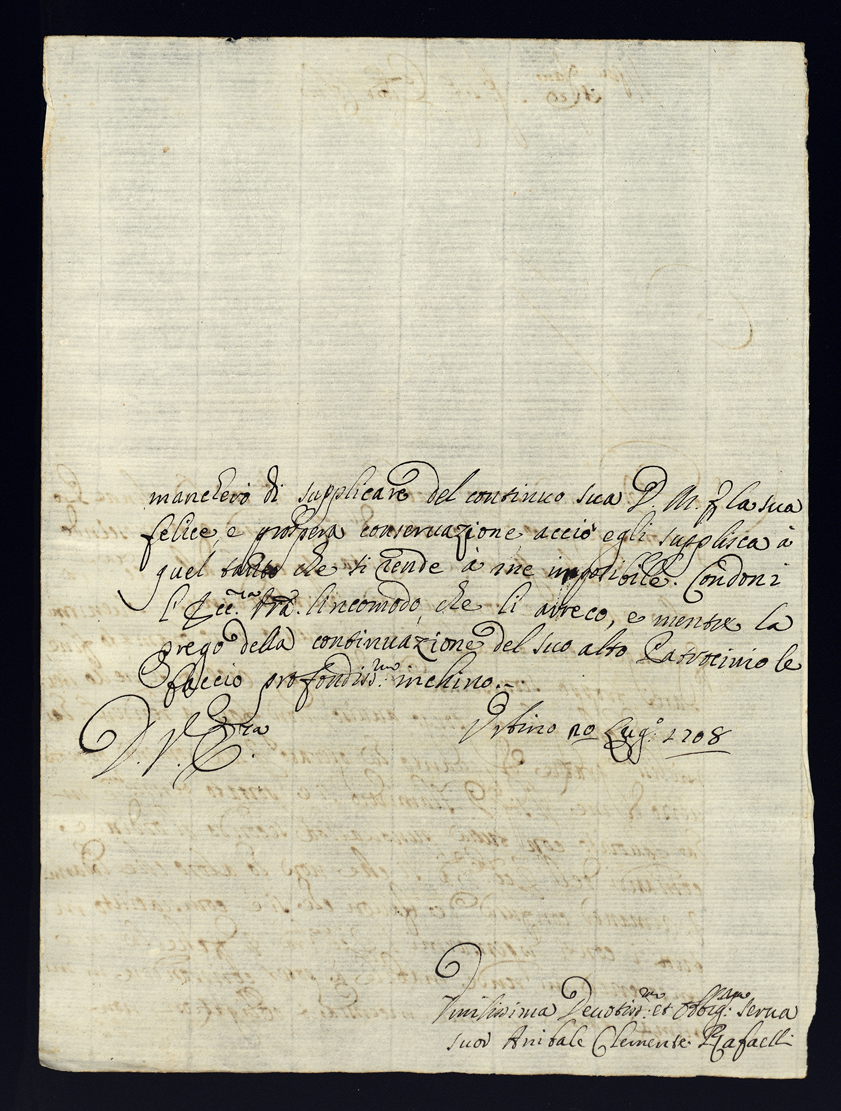 mancherò di supplicare del continuo sua D. M. p la sua
felice, e prospera conseruazione acciò egli supplisca à
quel tanto che si rende à me impossibile. Condoni
l'Ecc.ma Vra. lincomodo che li arreco, e mentre la
prego della continuazione del suo alto Patrocinio le
faccio profondiss.mo inchino.
D. V. Ecc.za Vrbino 20 Lug.o 1708
Vmilissima Deuotiss.ma et Obblig.ma Serua
suor Anibale Clemente Rafaelli